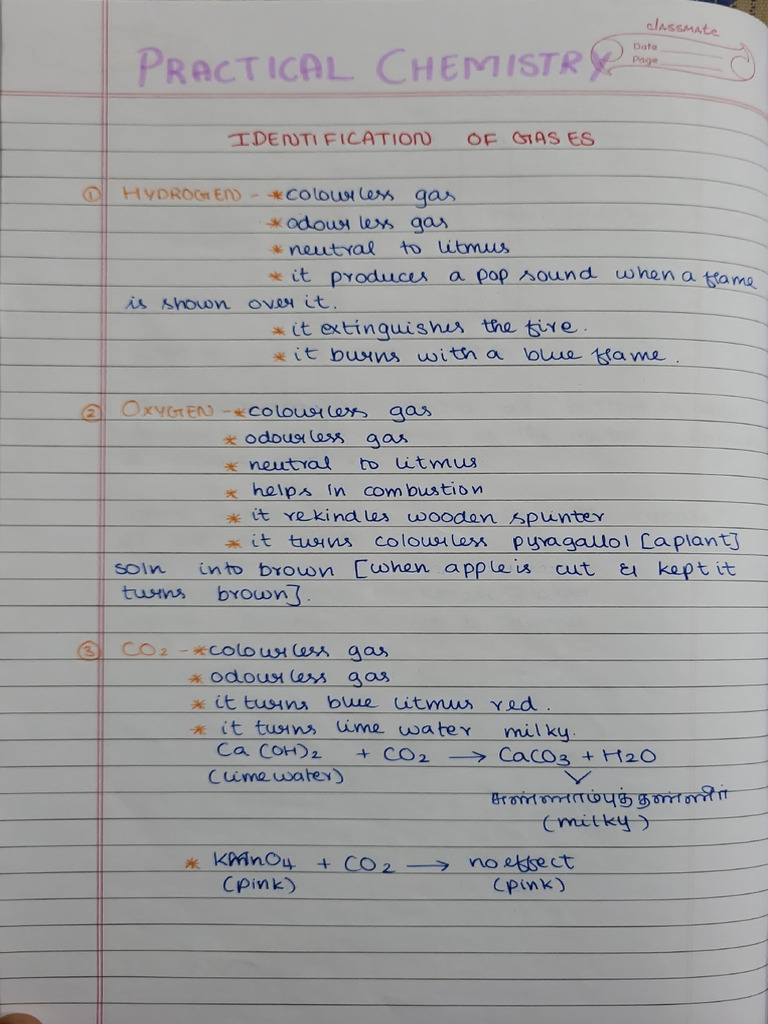 classmate
Date
Page
PRACTICAL CHEMISTRY
IDENTIFICATION OF GASES
① HYDROGEN - * colourless gas
* odourless gas
* neutral to litmus
* it produces a pop sound when a flame
is shown over it.
* it extinguishes the fire.
* it burns with a blue flame.
② OXYGEN - * colourless gas
* odourless gas
* neutral to litmus
* helps in combustion
* it rekindles wooden splinter
* it turns colourless pyragallol [aplant]
soln into brown [when apple is cut & kept it
turns brown].
③ CO2 - * colourless gas
* odourless gas
* it turns blue litmus red.
* it turns lime water milky.
Ca(OH)2 + CO2 → CaCO3 + H2O
(lime water)
சுண்ணாம்புத்தண்ணீர்
(milky)
* KMnO4 + CO2 → no effect
(pink) (pink)